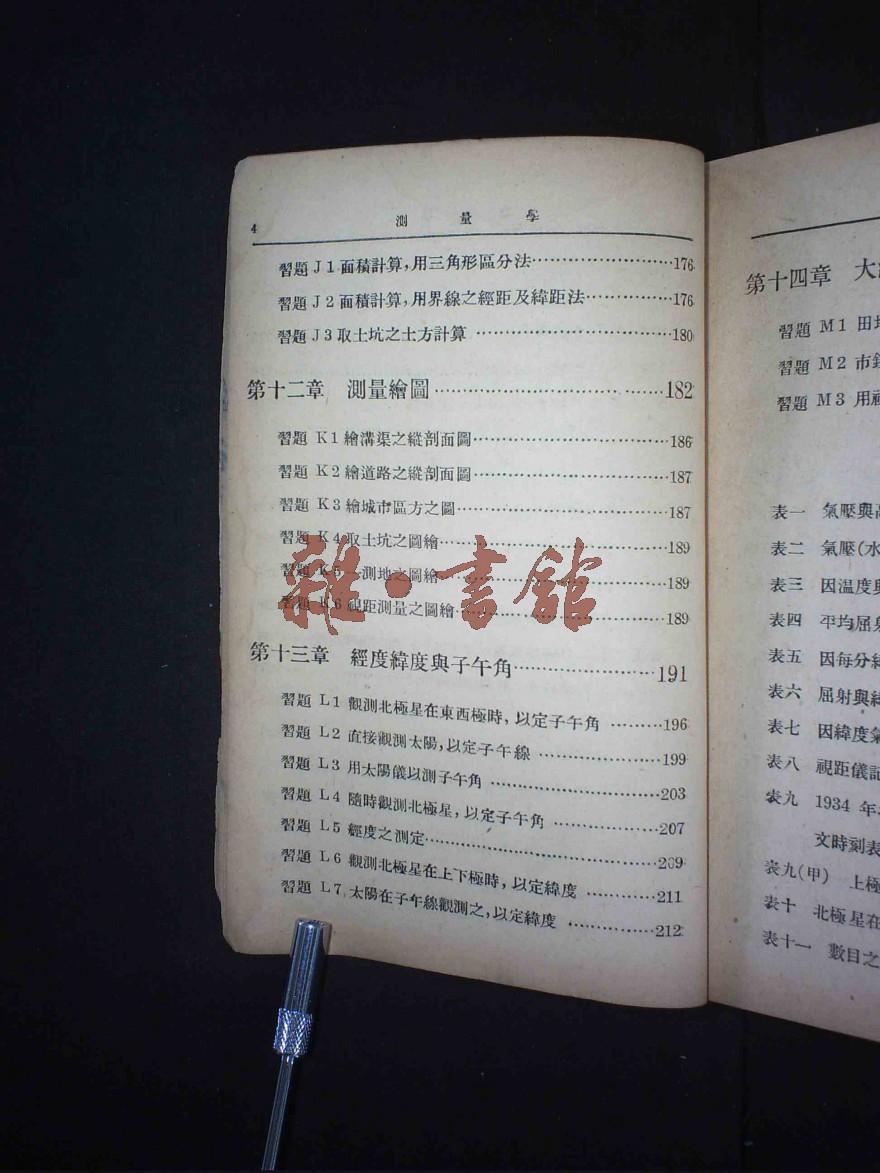 4 測量學
習題 J1 面積計算,用三角形區分法……………………176
習題 J2 面積計算,用界線之經距及緯距法……………176
習題 J3 取土坑之土方計算……………………………180
第十二章 測量繪圖……………………………182
習題 K1 繪溝渠之縱剖面圖……………………………186
習題 K2 繪道路之縱剖面圖……………………………187
習題 K3 繪城市區方之圖………………………………187
習題 K4 取土坑之圖繪…………………………………189
習題 K5 一測地之圖繪…………………………………189
習題 K6 視距測量之圖繪………………………………189
雜·書館
第十三章 經度緯度與子午角……………………191
習題 L1 觀測北極星在東西極時,以定子午角………196
習題 L2 直接觀測太陽,以定子午線…………………199
習題 L3 用太陽儀以測子午角…………………………203
習題 L4 隨時觀測北極星,以定子午角………………207
習題 L5 經度之測定……………………………………209
習題 L6 觀測北極星在上下極時,以定緯度…………211
習題 L7 太陽在子午線觀測之,以定緯度……………212
第十四章 大
習題 M1 田
習題 M2 市
習題 M3 用視
表一 氣壓與高
表二 氣壓(水
表三 因溫度與
表四 平均屈射
表五 因每分緯
表六 屈射與緯
表七 因緯度氣
表八 視距儀記
表九 1934 年
文時刻表
表九(甲) 上極
表十 北極星在
表十一 數目之